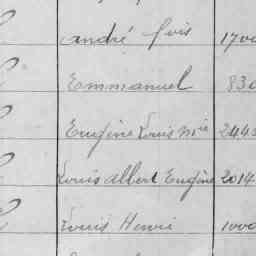 André fois 1700
Emmanuel 830
Eugène Louis Mie 2443
Louis Albert Eugène 2014
Louis Henri 1000